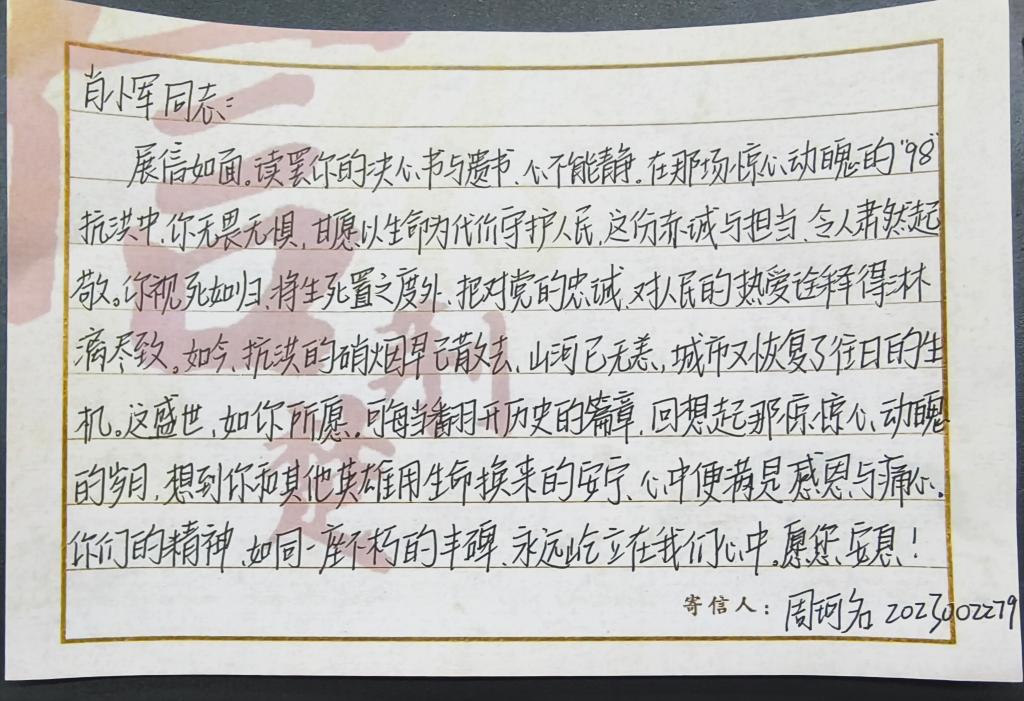 肖小军同志：
展信如面。读罢你的决心书与遗书、心不能静。在那场惊心动魄的"98"
抗洪中，你无畏无惧，甘愿以生命为代价守护人民，这份赤诚与担当、令人肃然起
敬。你视死如归、将生死置之度外、把对党的忠诚、对人民的热爱诠释得淋
漓尽致。如今，抗洪的硝烟早已散去、山河已无恙，城市又恢复了往日的生
机。这盛世，如你所愿。可每当翻开历史的篇章，回想起那惊惊心、动魄
的岁月，想到你和其他英雄用生命换来的安宁、心中便满是感恩与痛心。
你们的精神、如同一座不朽的丰碑、永远屹立在我们心中。愿您安息！
寄信人：周珂名 2023002279
信
荆楚